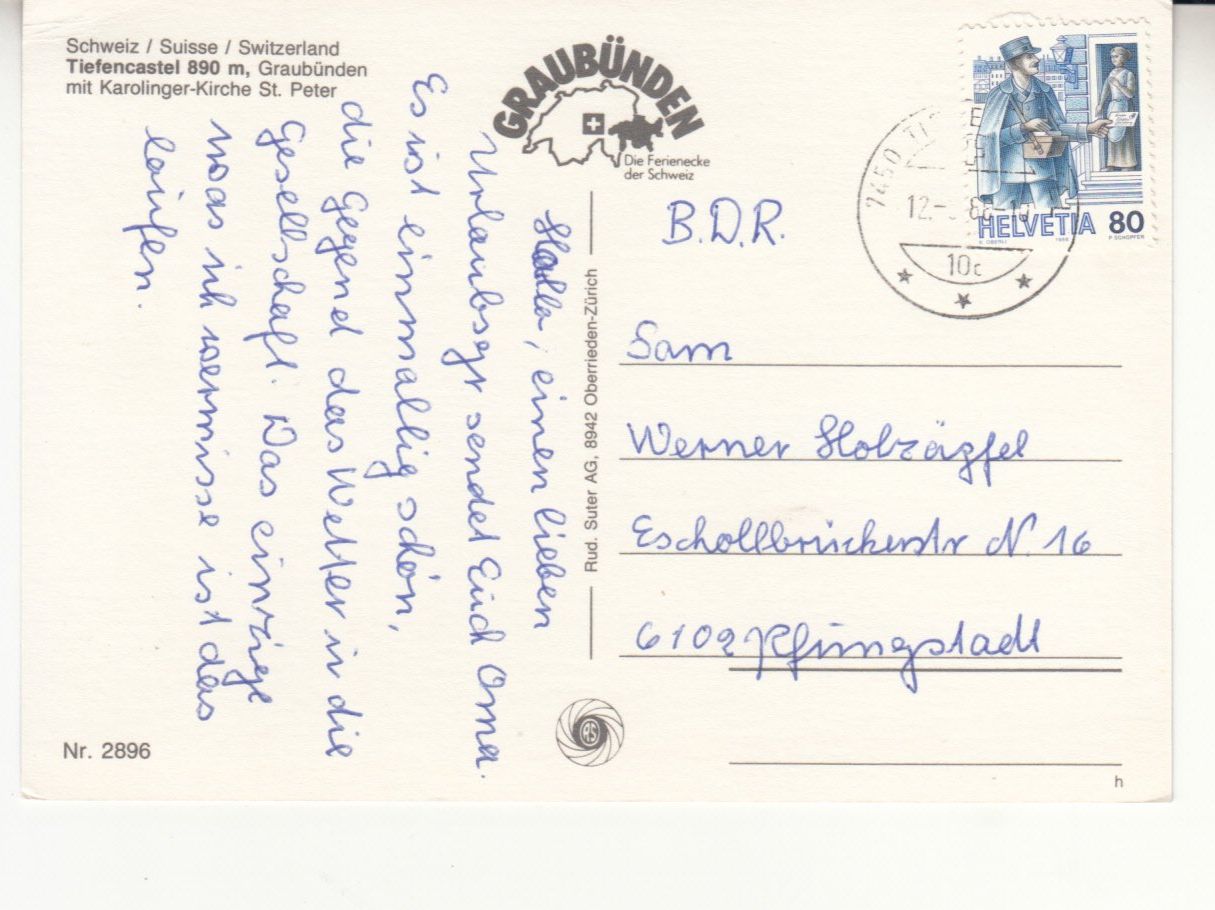 Schweiz / Suisse / Switzerland
Tiefencastel 890 m, Graubünden
mit Karolinger-Kirche St. Peter
GRAUBÜNDEN
Die Ferienecke
der Schweiz
Hallo, einen lieben
Urlaubsgr sendet Euch Oma.
Es ist einmallig schön,
die Gegend das Wetter in die
Gesellschaft. Das einzige
was ich vermisse ist das
laufen.
Nr. 2896
Rud. Suter AG, 8942 Oberrieden-Zürich
RS
7450
12.
10c
HELVETIA 80
K. OBERLI
1986
P. SCHOPFER
B.D.R.
Sam
Werner Holzäpfel
Eschollbrückerstr N. 16
6102 Pfungstadt
h